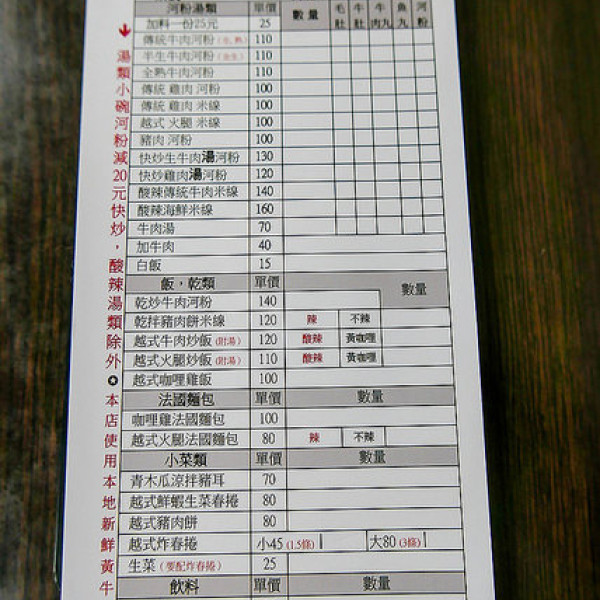 河粉湯類 單價 數量 毛肚 牛肚 牛肉丸 魚丸 河粉
加料一份25元 25
傳統牛肉河粉(生.熟) 110
半生牛肉河粉(全生) 110
全熟牛肉河粉 110
傳統 雞肉 河粉 100
傳統 雞肉 米線 100
越式 火腿 米線 100
豬肉 河粉 100
快炒生牛肉湯河粉 130
快炒雞肉湯河粉 120
酸辣傳統牛肉米線 140
酸辣海鮮米線 160
牛肉湯 70
加牛肉 40
白飯 15
飯，乾類 單價 數量
乾炒牛肉河粉 140
乾拌豬肉餅米線 120 辣 不辣
越式牛肉炒飯(附湯) 120 酸辣 黃咖哩
越式火腿炒飯(附湯) 110 酸辣 黃咖哩
越式咖哩雞飯 100
法國麵包 單價 數量
咖哩雞法國麵包 100
越式火腿法國麵包 80 辣 不辣
小菜類 單價 數量
青木瓜涼拌豬耳 70
越式鮮蝦生菜春捲 80
越式豬肉餅 80
越式炸春捲 小45(1.5條) 大80(3條)
生菜(要配炸春捲) 25
飲料 單價 數量
湯類小碗河粉減20元快炒，酸辣湯類除外✪本店使用本地新鮮黃牛